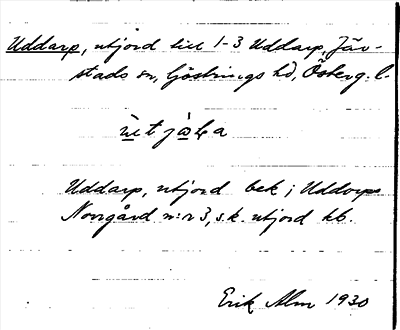 Uddarp, utjord till 1-3 Uddarp, Jär-
stads sn, Göstrings hd, Österg. l.
Uddarp, utjord bek i Uddorps
Norrgård n:r 3, s.k. utjord kb.
Erik Alm 1930